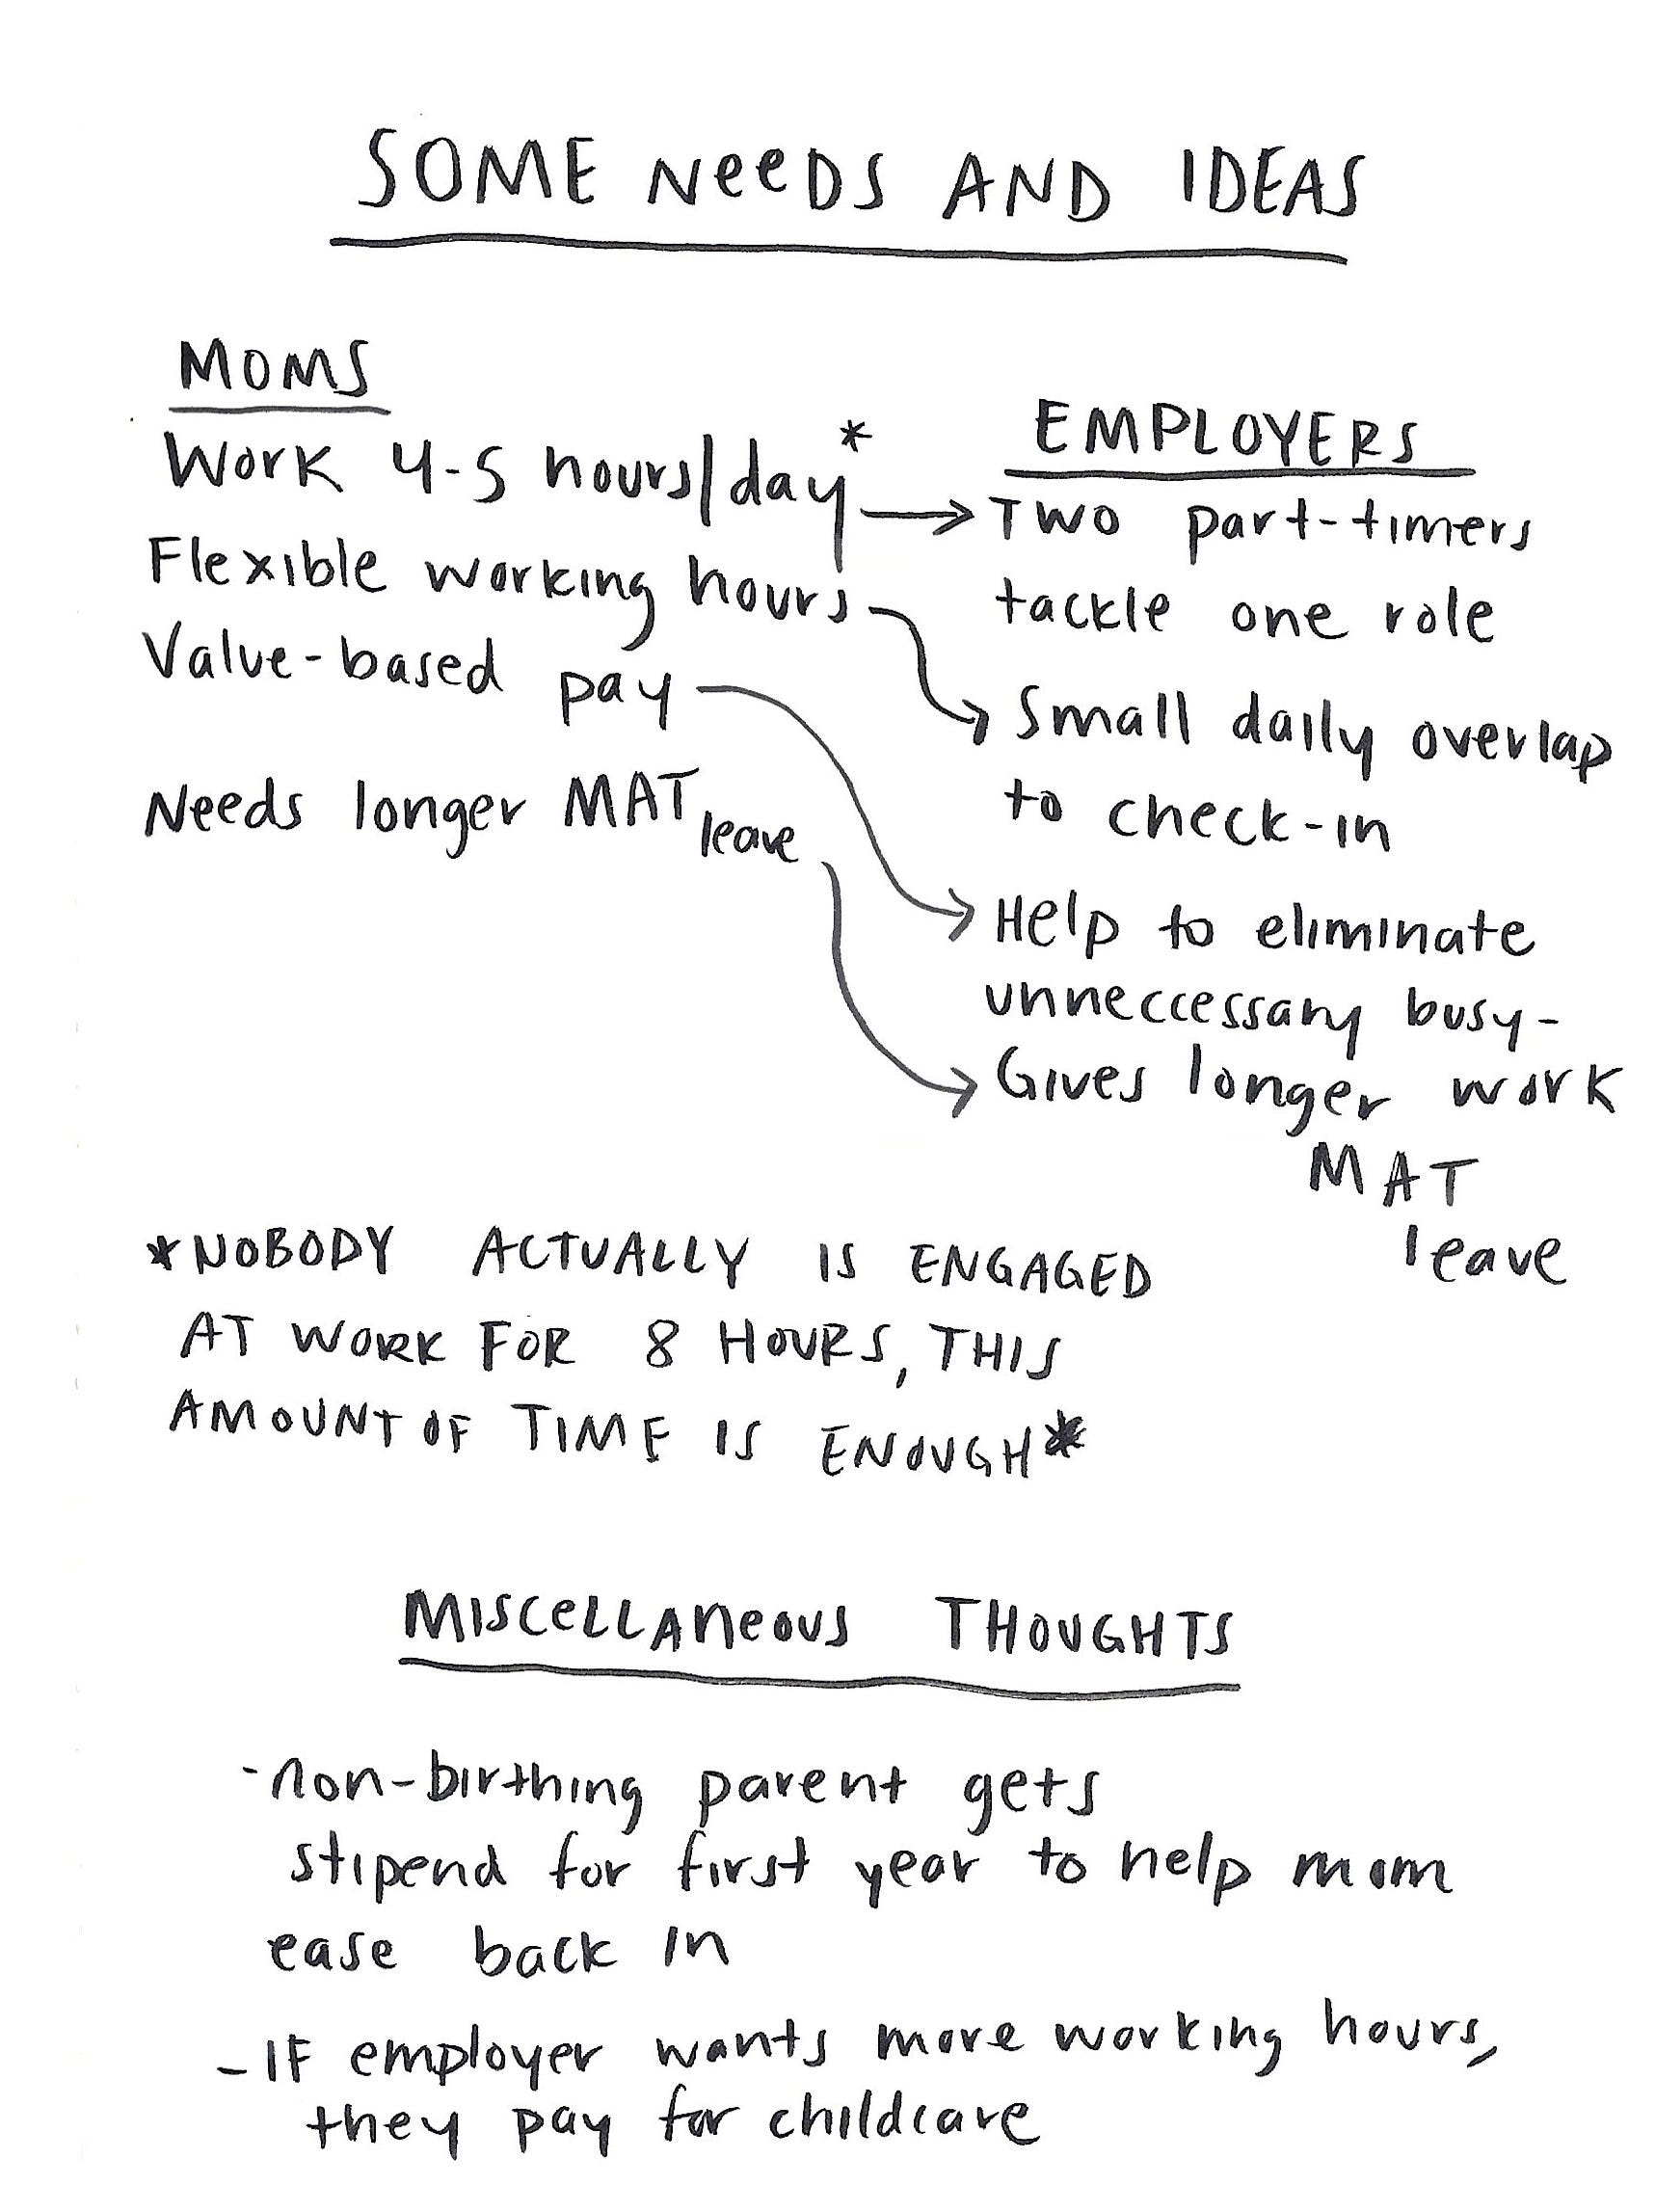 SOME NeeDS AND IDEAS
MOMS
Work 4-5 hours/day*
Flexible working hours
Value-based pay
Needs longer MAT leave
EMPLOYERS
→ Two part-timers
tackle one role
→ Small daily overlap
to check-in
→ Help to eliminate
unneccessary busy-
work
→ Gives longer
MAT
leave
*NOBODY ACTUALLY IS ENGAGED
AT WORK FOR 8 HOURS, THIS
AMOUNT OF TIME IS ENOUGH*
MISCeLLANeous THOUGHTS
-non-birthing parent gets
stipend for first year to help mom
ease back in
- IF employer wants more working hours,
they pay for childcare